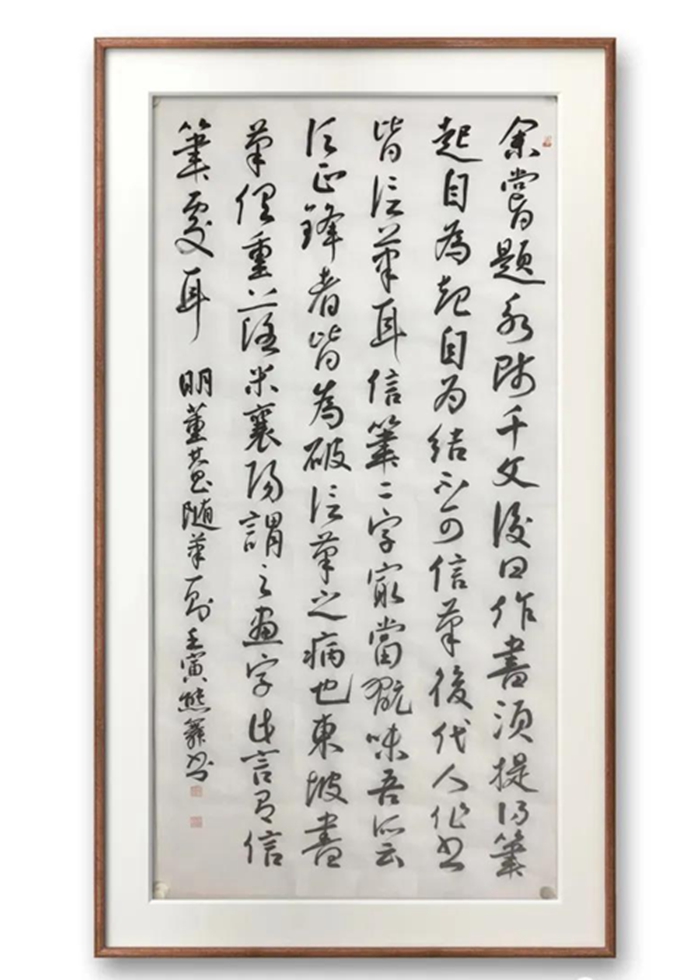 余嘗題永師千文後曰作書須提得筆
起自為起自為結不可信筆後代人作書
皆信筆耳信筆二字最當翫味吾所云
須正鋒者皆為破信筆之病也東坡書
筆俱重落米襄陽謂之畫字此言有信
筆處耳 明董其昌隨筆一則 壬寅熊書